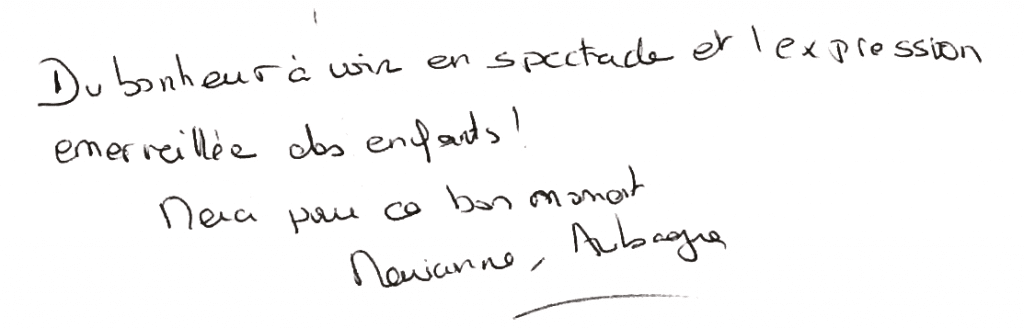 Du bonheur à voir en spectacle et l'expression
emerveillée des enfants !
Merci pour ce bon moment
Marianne, Aubagne